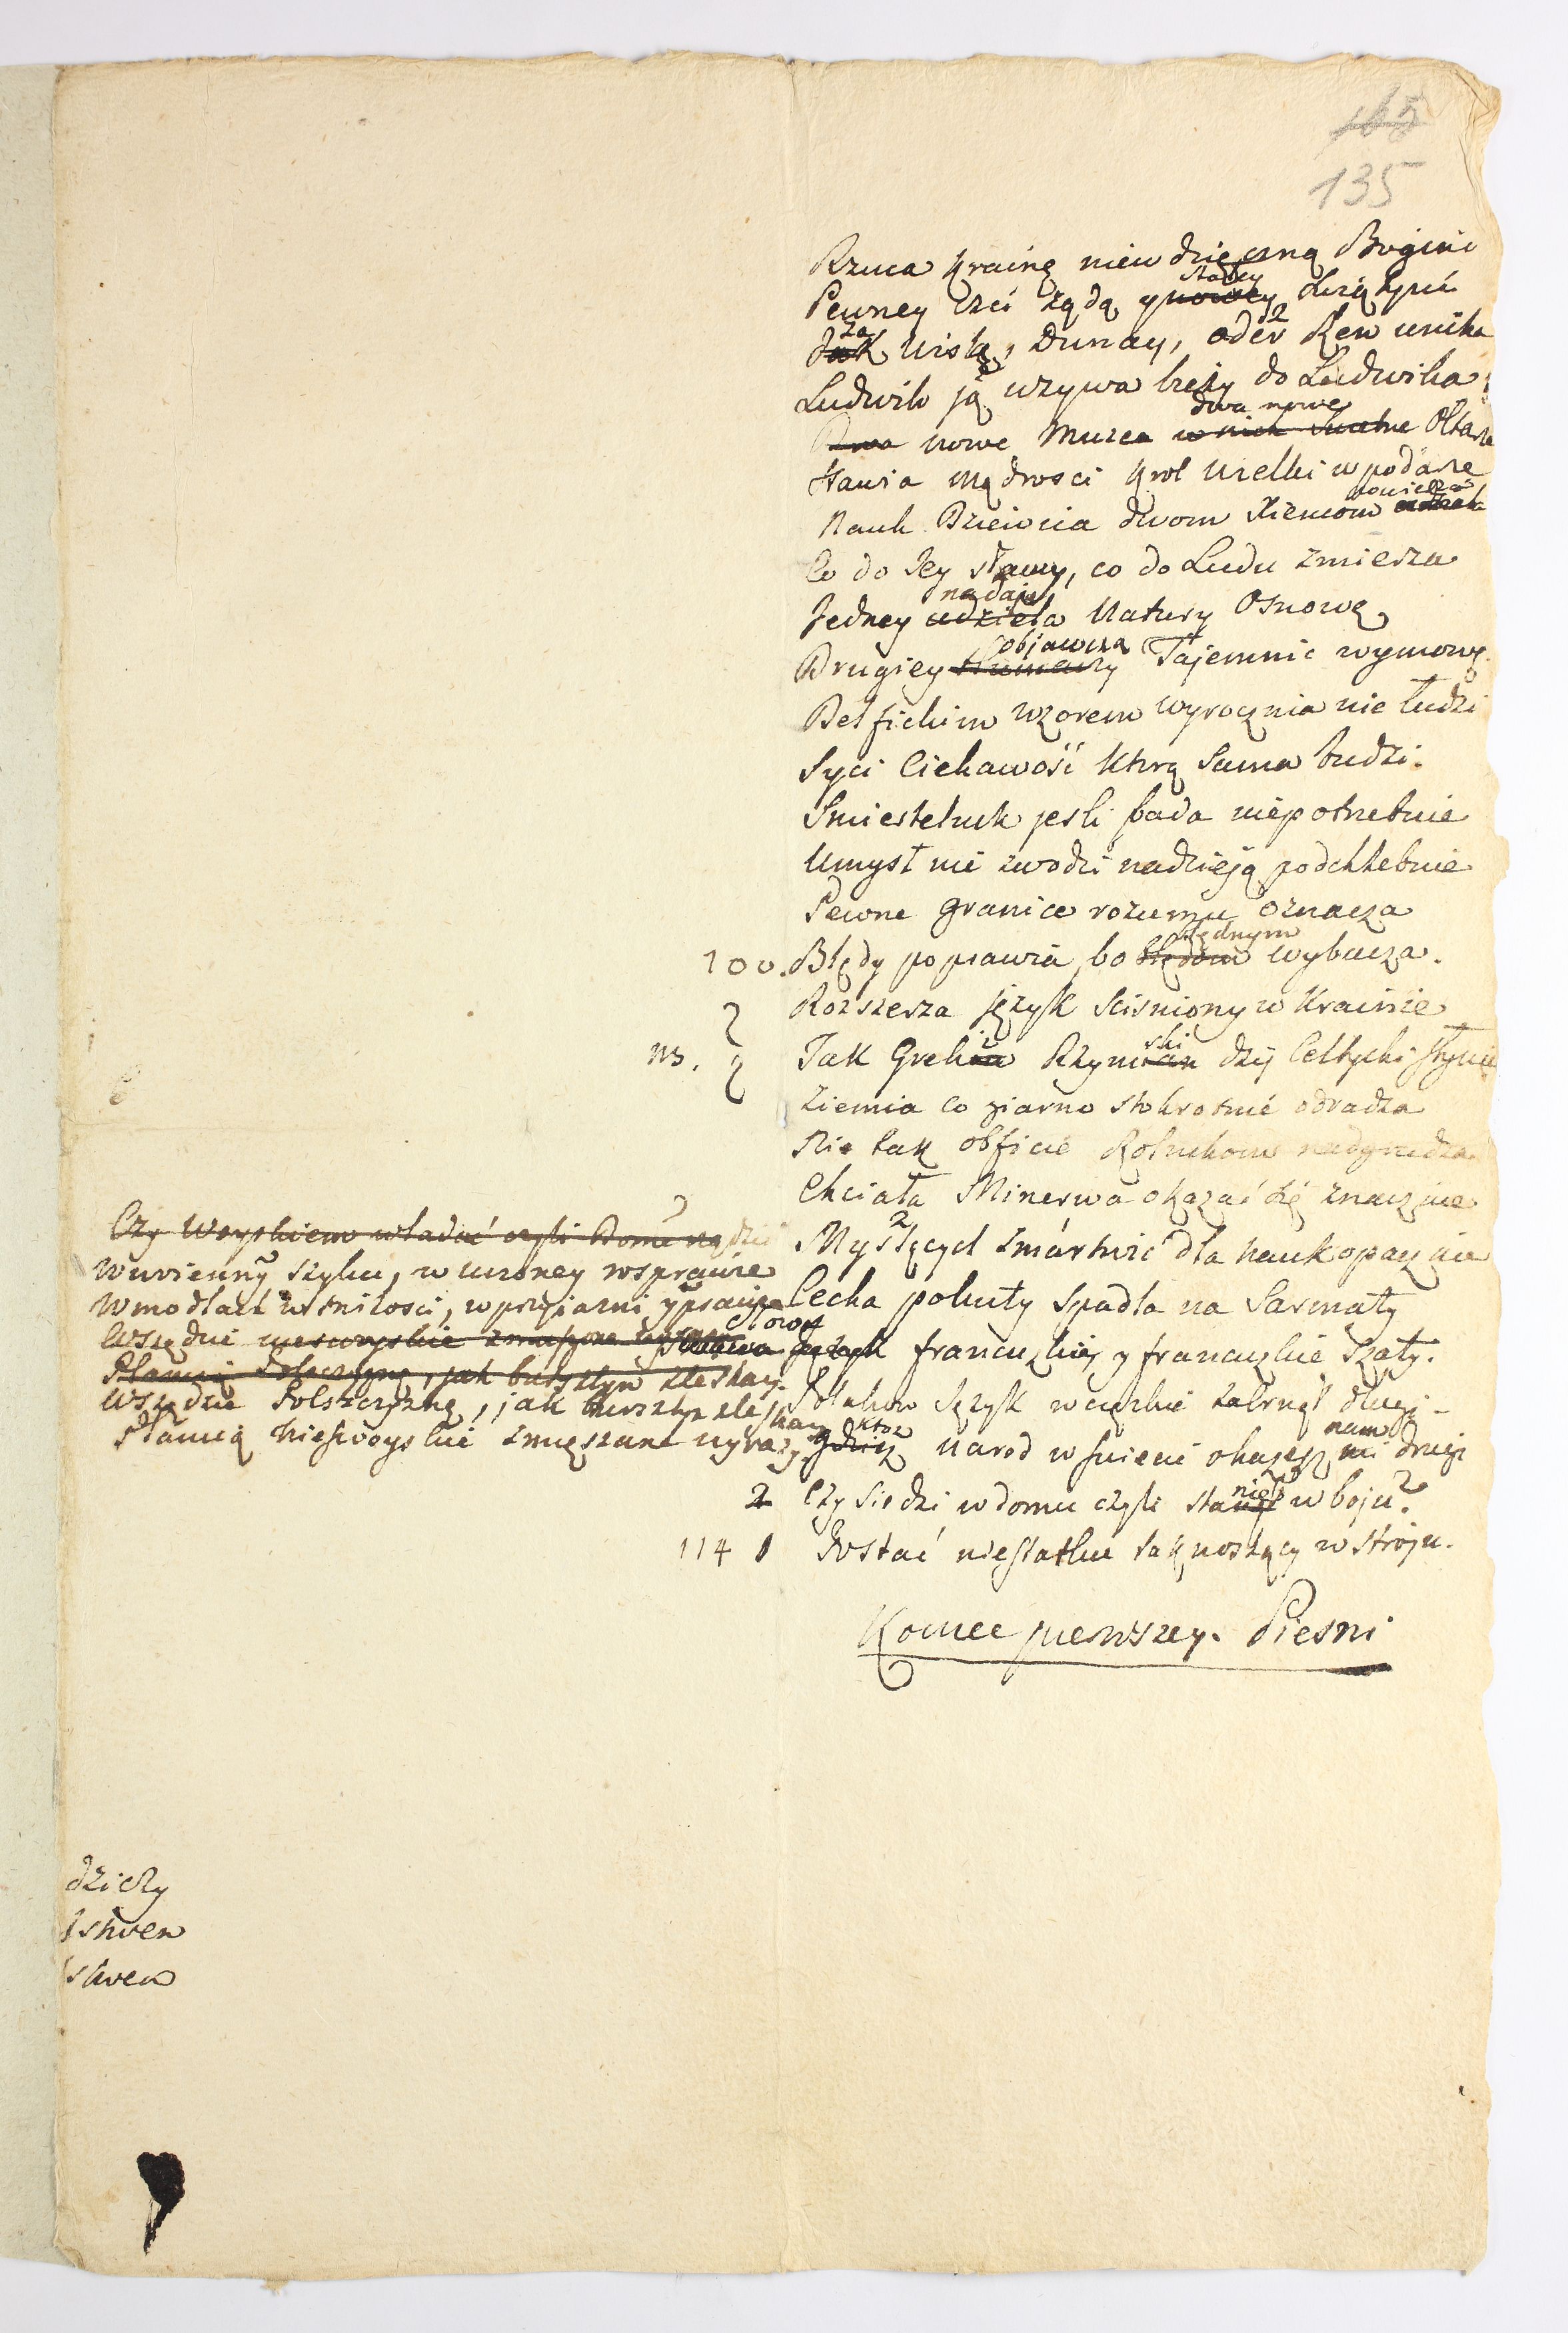 135
Rzuca krainę niewdzięczną Bogini
Pewney czci żąda y stałey
za Wisłę, Dunay, oder Ren unika
Ludwik ją wzywa bieży do Ludwika
nowe Muzea dwa nowe Ołtarze
stawia mądrosci krol wielki w podarze
Nauk Dziewica dwom Xięciom powierza
Co do Jey sławy, co do Ludu zmierza
Jedney nadaje Natury Osnowę
Drugiey objawcza Tajemnic wymowę.
Delfickim wzorem wyrocznia nie łudzi
Syci Ciekawość którą Sama budzi.
Smiertelnik jesli bada niepotrzebnie
Umysł nie zwodzi nadzieją podchlebnie
Pewne granice rozumu oznacza
100. Błędy poprawia, bo błędnym wybacza.
Rozszerza język scisniony w Krainie
NB. Jak Grecki Rzymski dziś Celtycki słynie
Ziemia co ziarno stokrotnie odradza
Nie tak obficie Rolnikom nadgradza
Chciała Minerwa okazać się znacznie
Myślących zmártwić dla nauk opacznie
Lecha pokuty spadła na Sarmaty
Słowa francuzkiey y francuzkie szaty.
Polakow Język w ciężkie zabrnął długi
ktoz narod w swiecie okazesz nam drugi
2 Czy siedzi w domu czyli stanie w boju?
114 1 Postać niestatku tak noszący w stroju.
Koniec pierwszey. Piesni
Czy Woyskiem władać czyli Domu
W uczonney szyku, w uczoney rosprawie
W modłach w miłosci, w przyjazni y prawie
Wszędzie
Plamią Polszczyznę, jak bursztyn ze skazy.
Wszędzie Polszczyznę, jak bursztyn ze skazy
Plamią nieswoyskie zmięszane wyrazy
dziczy
stwen
stwen